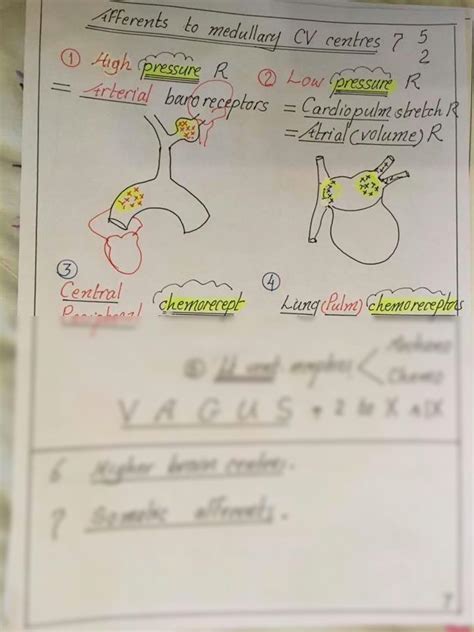 Afferents to medullary CV centres 7 5
2
① High pressure R
= Arterial baroreceptors
② Low pressure R
= Cardiopulm stretch R
= Atrial (volume) R
③
Central chemorecept
Peripheral
④
Lung (Pulm) chemoreceptors
VAGUS + 2 to X & IX
6 Higher brain centres.
7 Somatic afferents.
7